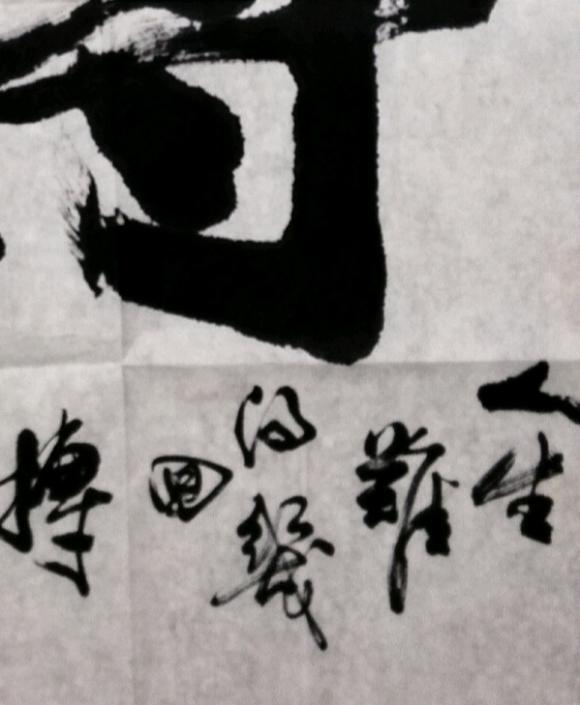 人生
難
得幾
回
搏